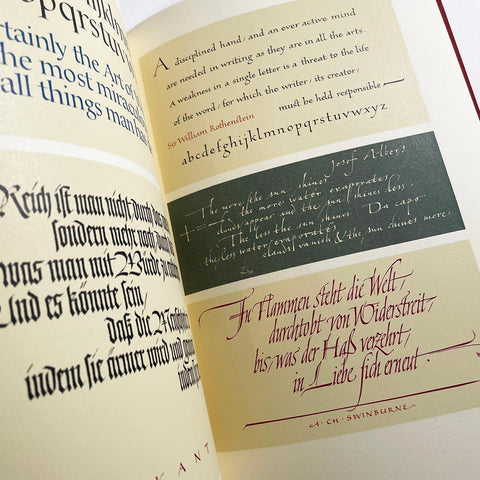 opqrstu
rtainly the Art of
the most miracul
all things man ha
Reich ist man nicht durch
sondern mehr noch durch
was man mit Würde
Und es könnte sein,
daß die
indem sie ärmer wird
KANT
A disciplined hand, and an ever active mind
are needed in writing as they are in all the arts.
A weakness in a single letter is a threat to the life
of the word, for which the writer, its creator,
must be held responsible
Sir William Rothenstein
abcdefghijklmnopqrstuvwxyz
Josef Albers
The more the sun shines
the more water evaporates
clouds appear and the sun shines less.
The less the sun shines Da capo
the less water evaporates
clouds vanish & the sun shines more
In Flammen steht die Welt,
durchtobt von Widerstreit,
bis, was der Haß verzehrt,
in Liebe sich erneut.
A. CH. SWINBURNE